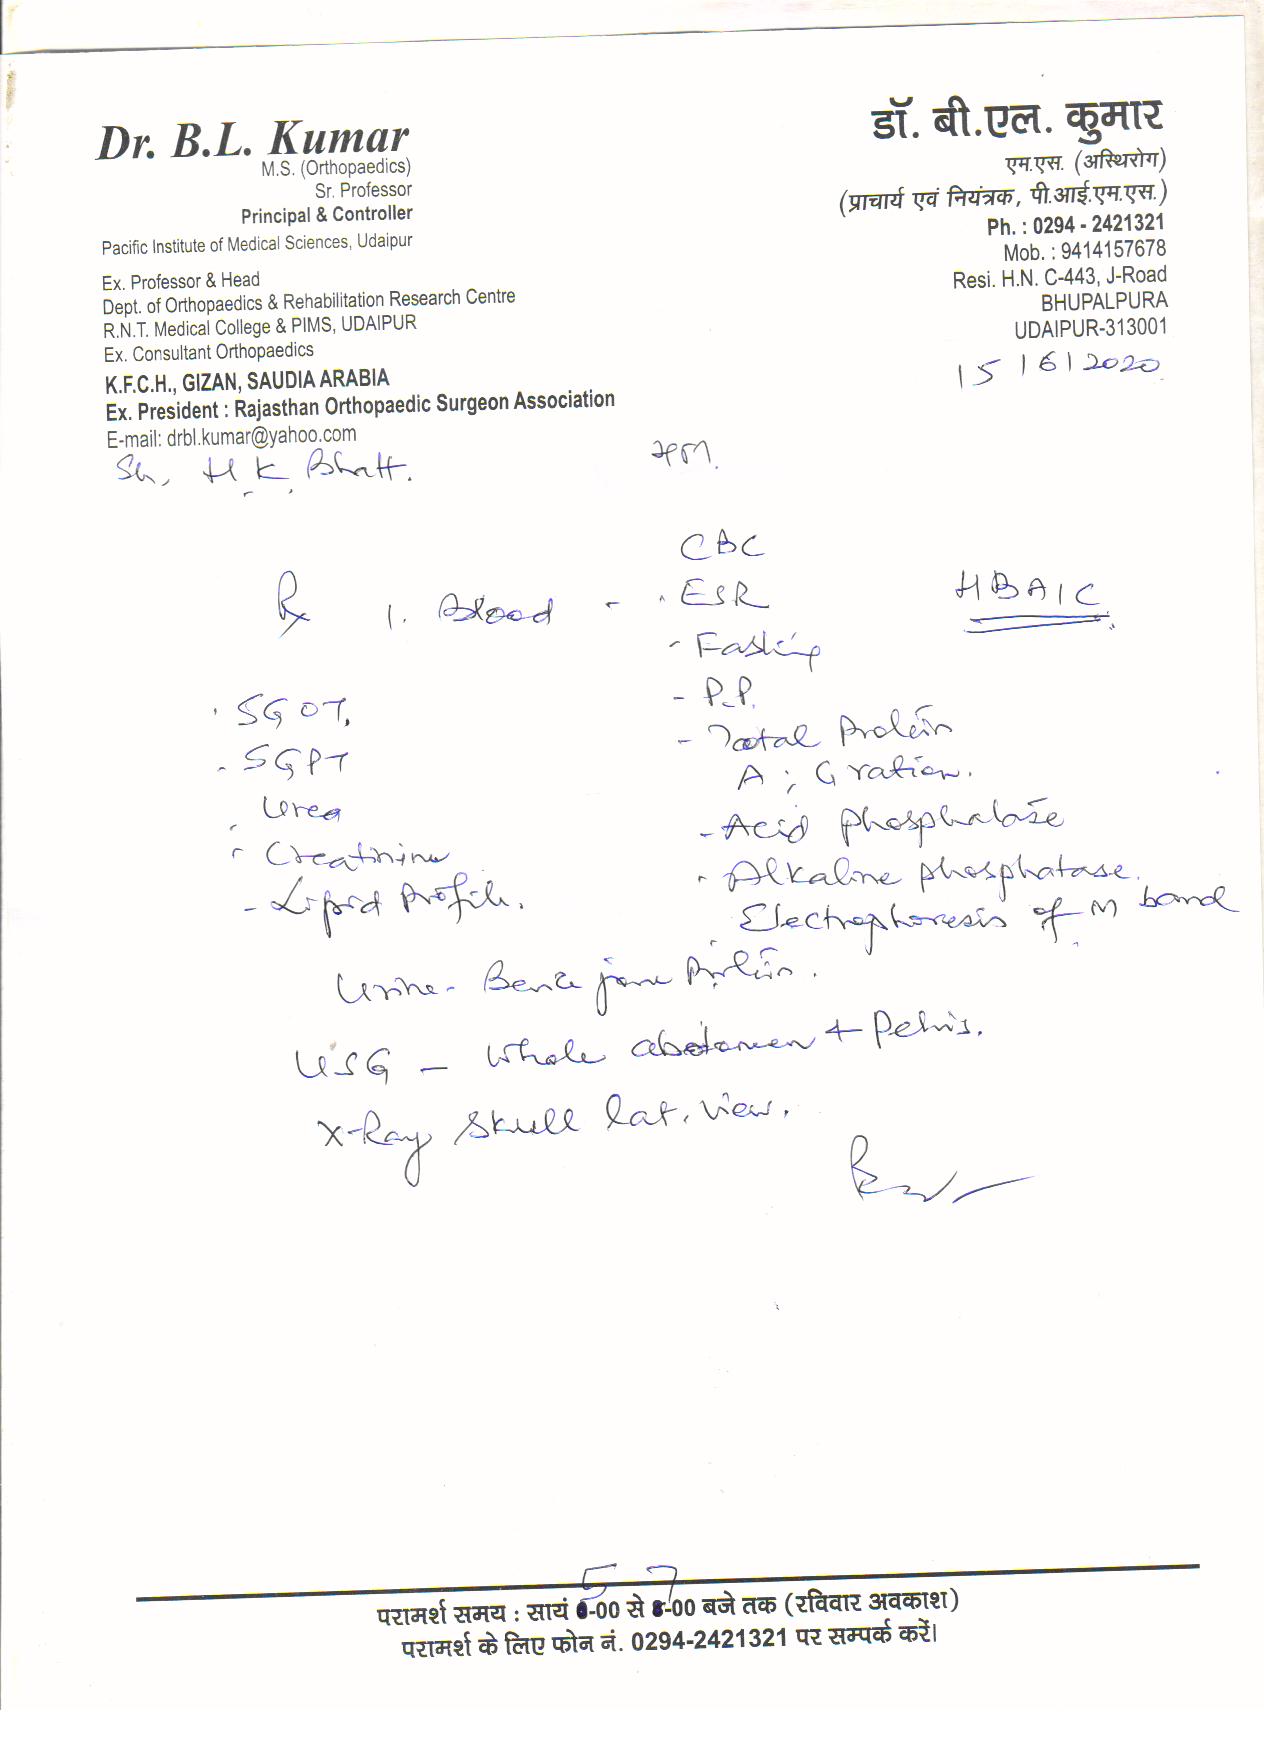 Dr. B.L. Kumar
M.S. (Orthopaedics)
Sr. Professor
Principal & Controller
Pacific Institute of Medical Sciences, Udaipur
Ex. Professor & Head
Dept. of Orthopaedics & Rehabilitation Research Centre
R.N.T. Medical College & PIMS, UDAIPUR
Ex. Consultant Orthopaedics
K.F.C.H., GIZAN, SAUDIA ARABIA
Ex. President : Rajasthan Orthopaedic Surgeon Association
E-mail: drbl.kumar@yahoo.com
डॉ. बी.एल. कुमार
एम.एस. (अस्थिरोग)
(प्राचार्य एवं नियंत्रक, पी.आई.एम.एस.)
Ph. : 0294 - 2421321
Mob. : 9414157678
Resi. H.N. C-443, J-Road
BHUPALPURA
UDAIPUR-313001
15/6/2020
Sh. H.K. Bhatt.
Rx 1. Blood - CBC
- ESR
HBA1C
- Fasting
- P.P.
- Total Protein
A ; G ration.
- Acid phosphatase
- Alkaline phosphatase.
Electrophoresis of M band
- SGOT.
- SGPT
- Urea
- Creatinine
- Lipid Profile.
Urine - Bence jone Protein.
USG - Whole abdomen + Pelvis.
X-Ray Skull lat. view.
5 7
परामर्श समय : सायं 6-00 से 8-00 बजे तक (रविवार अवकाश)
परामर्श के लिए फोन नं. 0294-2421321 पर सम्पर्क करें।